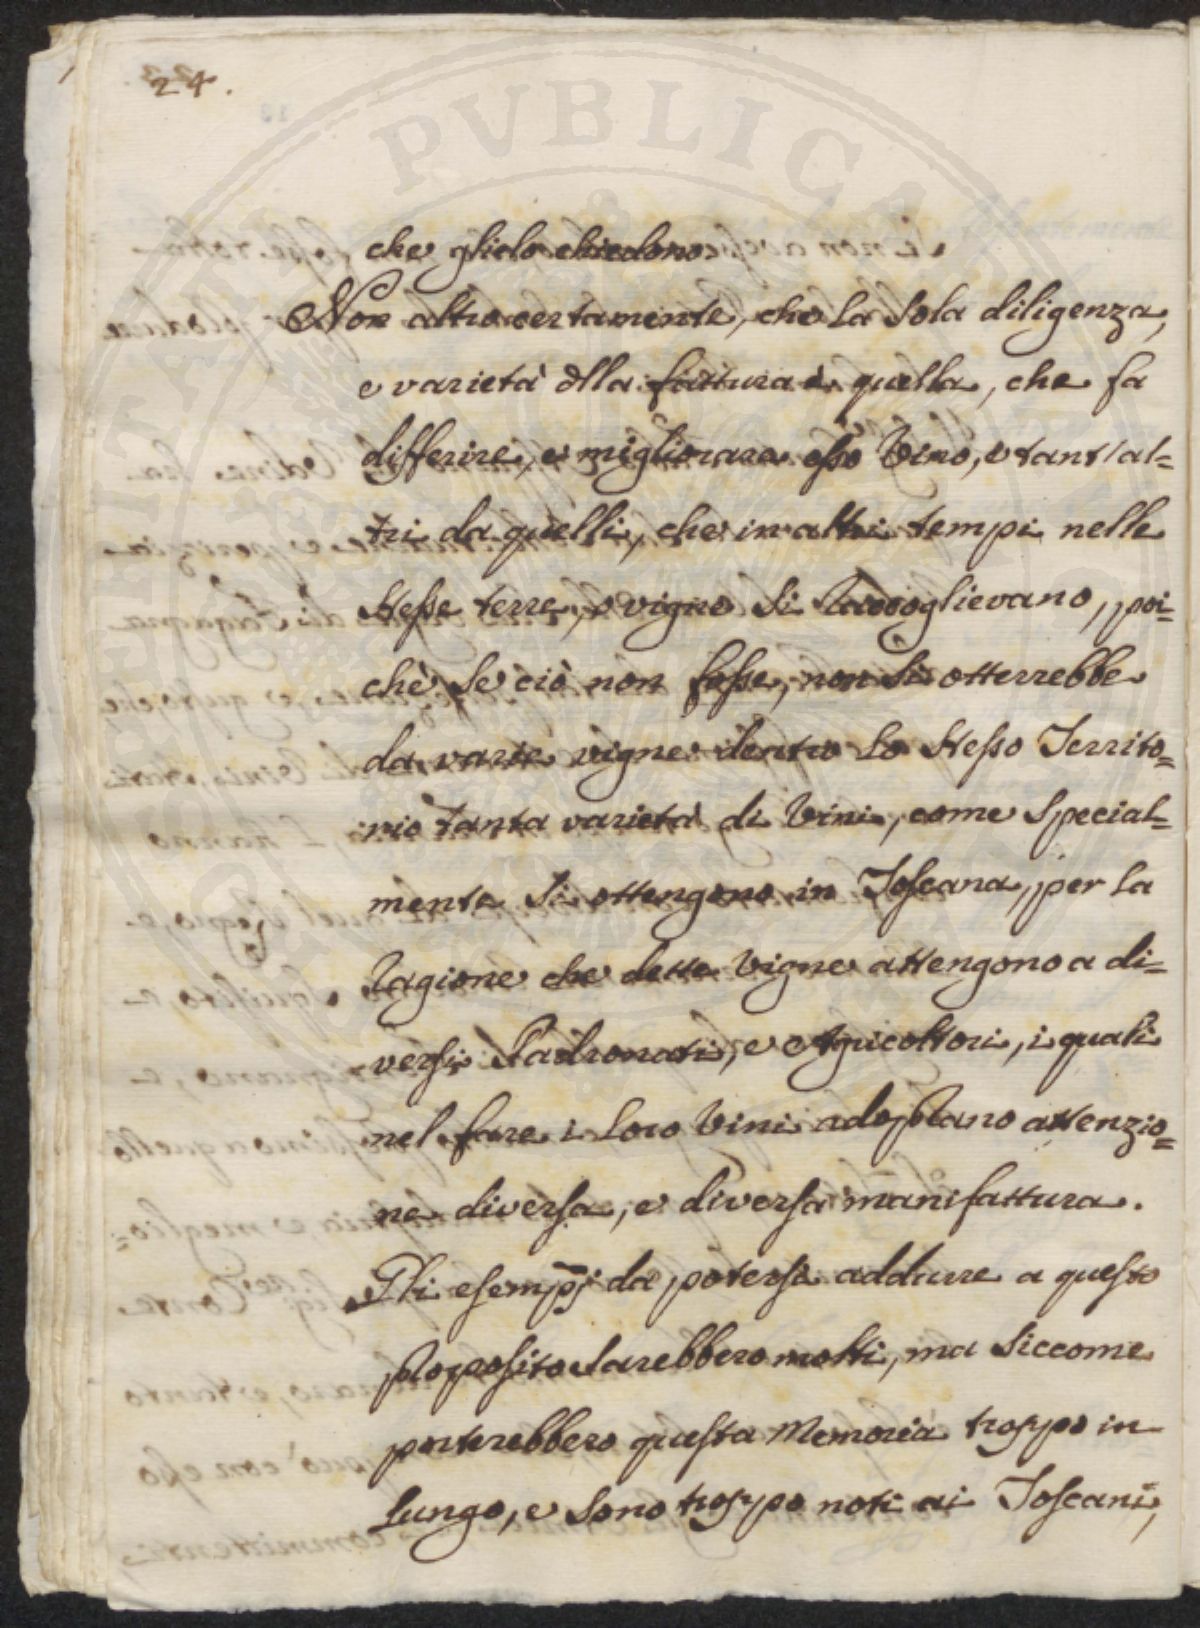 24.
che glielo chiedono.
Non altro certamente, che la sola diligenza,
e varietà dlla fattura è quella, che fa
differire, e migliorare esso Vino, e tant'al=
tri da quelli, che in altri tempi nelle
stesse terre, e vigne si raccoglievano, poi=
chè, se ciò non fosse, non si otterrebbe
da varie vigne dentro lo stesso Territo=
rio tanta varietà di Vini, come special=
mente si ottengono in Toscana, per la
ragione che dette Vigne attengono a di=
versi Padronati, e Agricoltori, i quali
nel fare i loro Vini adoprano attenzio=
ne diversa, e diversa manifattura.
Gli esempj da potersi addurre a questo
proposito sarebbero molti, ma siccome
porterebbero questa Memoria troppo in
lungo, e sono troppo noti ai Toscani,
PVBLICAE